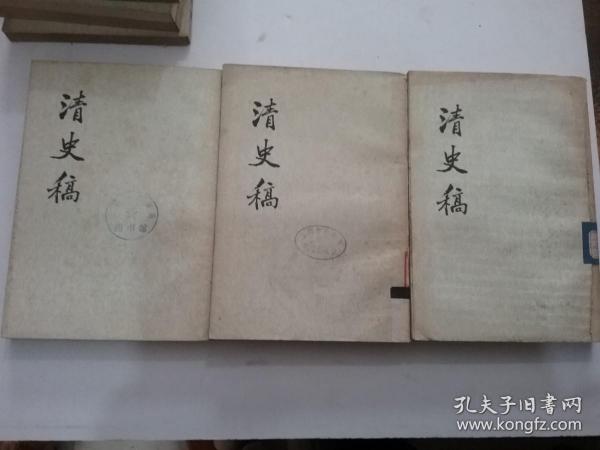 清史稿
清史稿
清史稿
孔夫子旧书网
www.kongfz.com